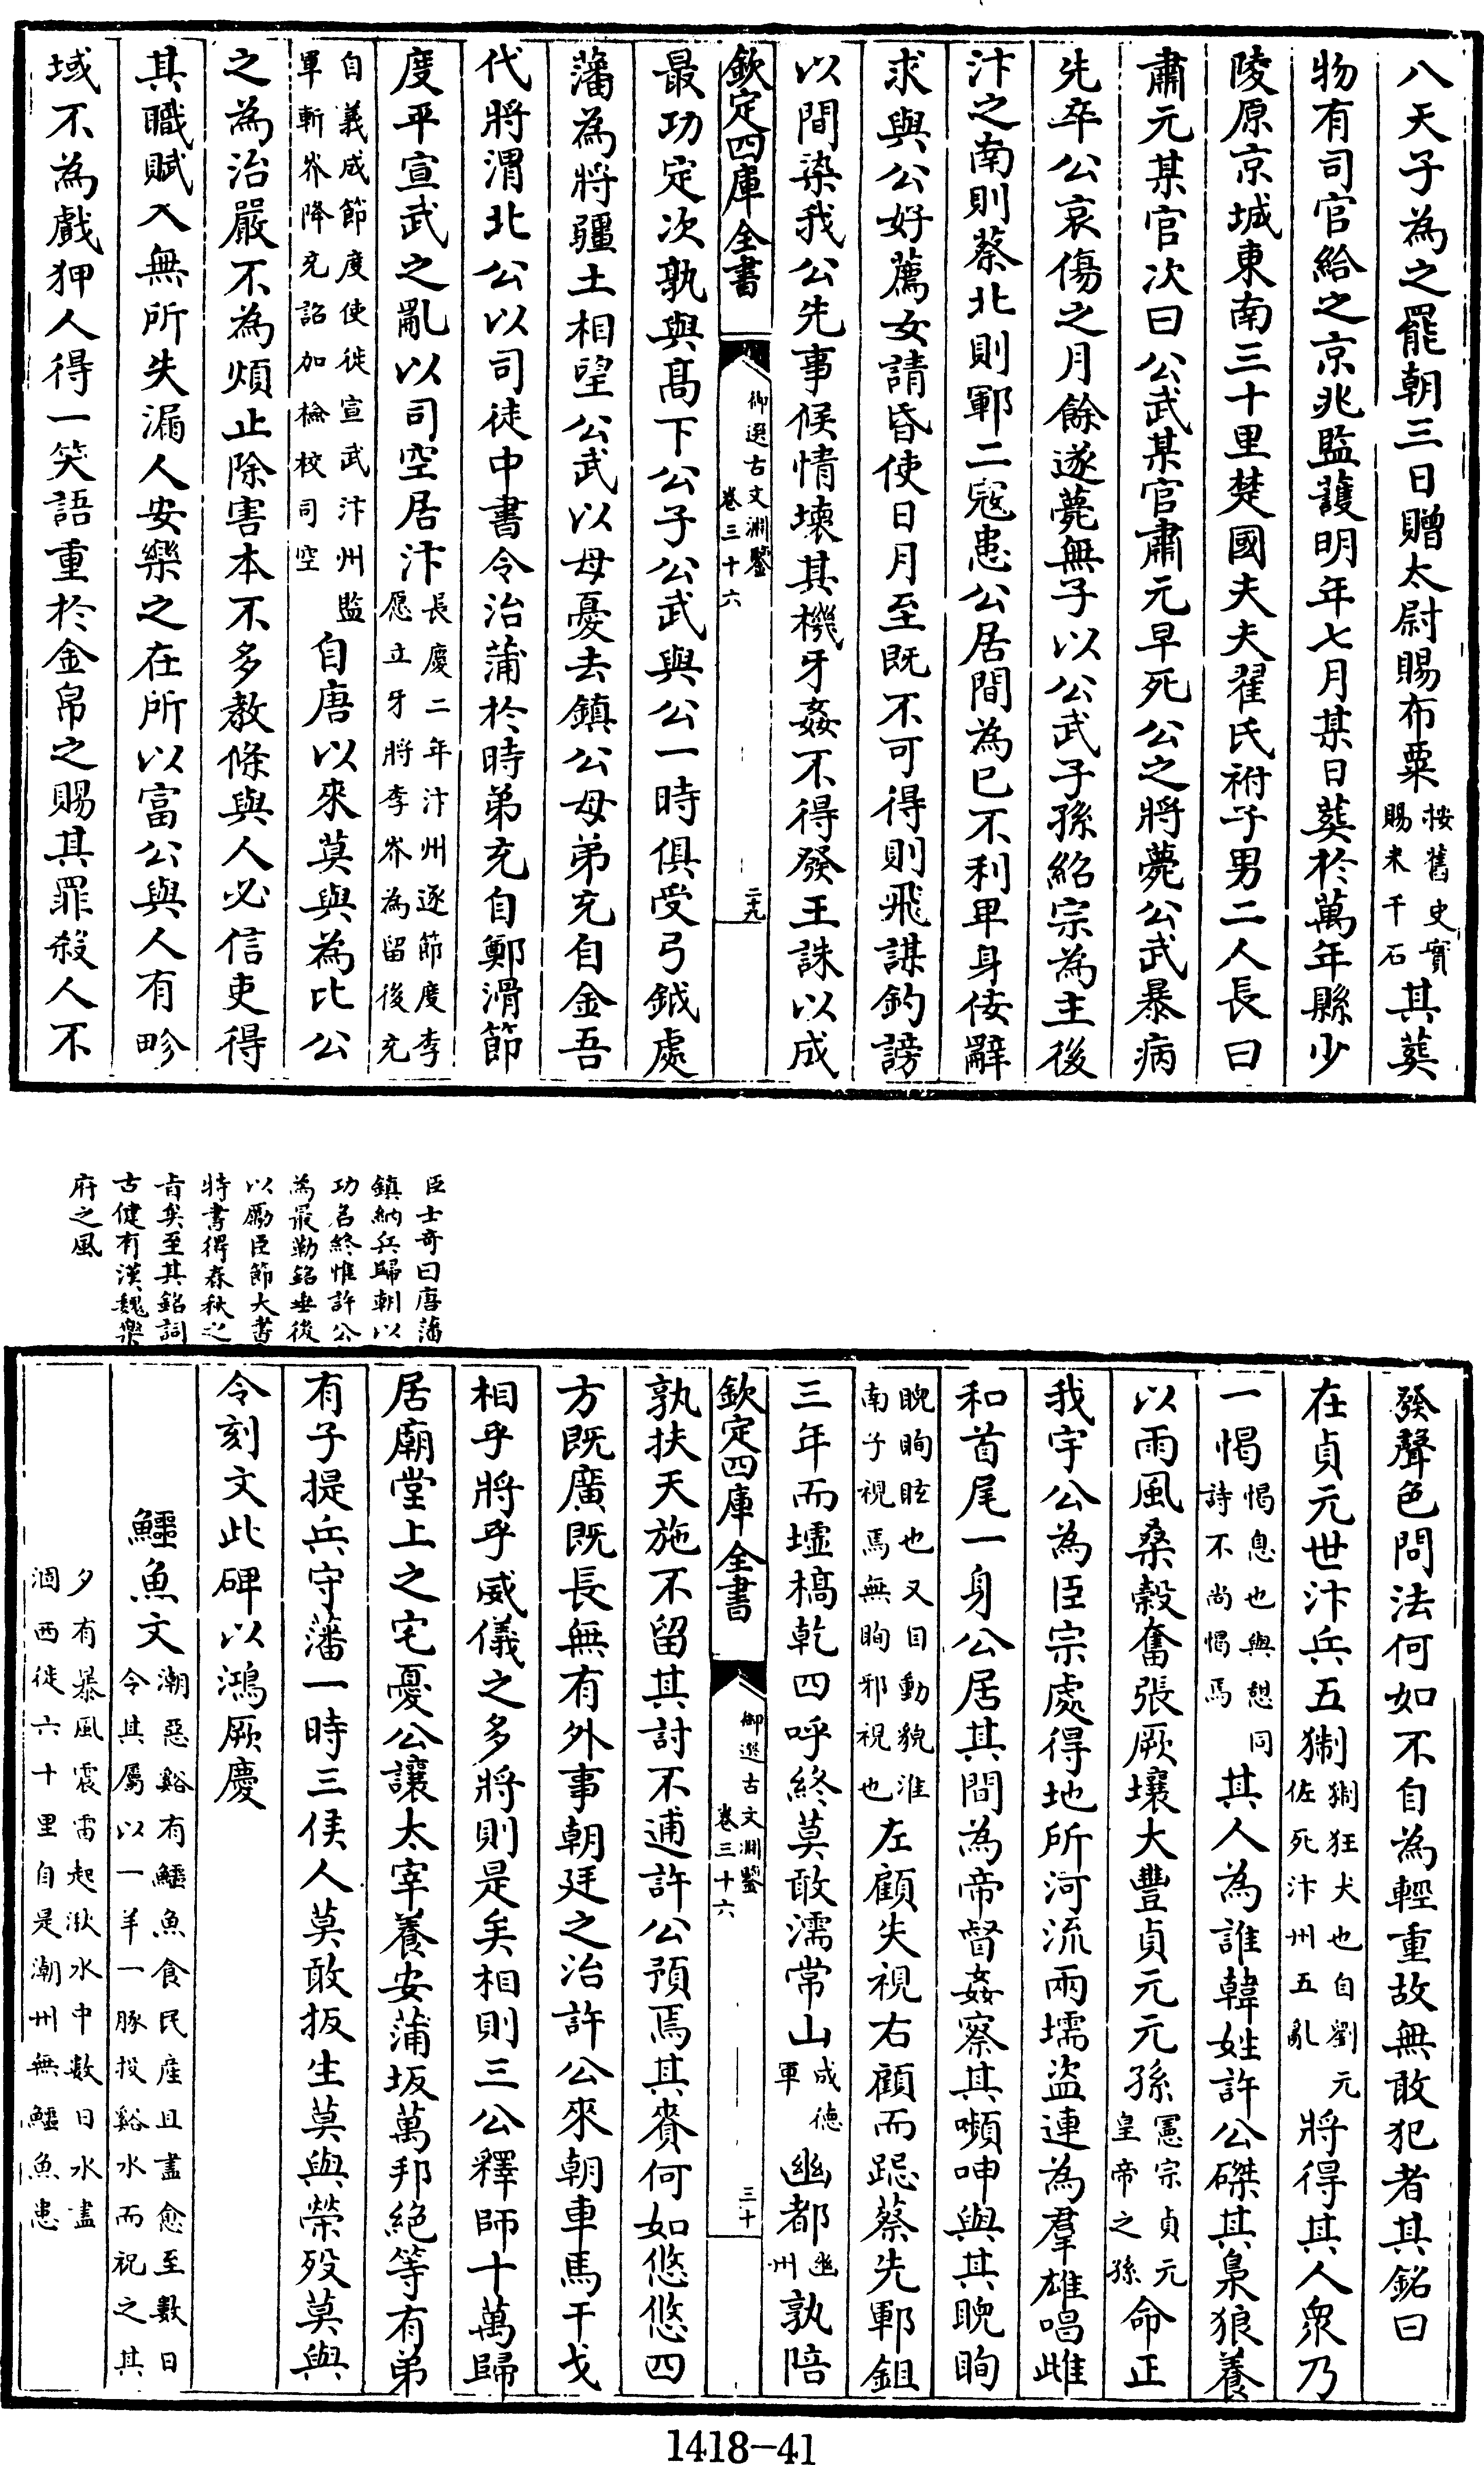 八天子為之罷朝三日贈太尉賜布粟按舊史實賜米千石其葬
物有司官給之京兆監䕶明年七月某日葬於萬年縣少
陵原京城東南三十里楚國夫夫翟氏祔子男二人長曰
肅元某官次曰公武某官肅元早死公之將薨公武暴病
先卒公哀傷之月餘遂薨無子以公武子孫紹宗為主後
汴之南則蔡北則鄆二寇患公居間為已不利卑身佞辭
求與公好薦女請昏使日月至既不可得則飛謀釣謗
以間染我公先事候情壊其機牙姦不得發王誅以成
欽定四庫全書
御選古文淵鑒
卷三十六
二十九
最功定次孰與髙下公子公武與公一時俱受弓鉞處
藩為將疆土相望公武以母憂去鎮公母弟充自金吾
代將渭北公以司徒中書令治蒲於時弟充自鄭滑節
度平宣武之亂以司空居汴長慶二年汴州逐節度李愿立牙將李㝏為留後充
自義成節度使徙宣武汴州監軍斬㝏降充詔加檢校司空自唐以來莫與為比公
之為治嚴不為煩止除害本不多教條與人必信吏得
其職賦入無所失漏人安樂之在所以富公與人有畛
域不為戲狎人得一笑語重於金帛之賜其罪殺人不
臣士竒曰唐藩
鎮納兵歸朝以
功名終惟許公
為最勒銘垂後
以勵臣節大書
特書得春秋之
㫖矣至其銘詞
古健有漢魏樂
府之風
發聲色問法何如不自為輕重故無敢犯者其銘曰
在貞元世汴兵五猘猘狂犬也自劉元佐死汴州五亂將得其人衆乃
一愒愒息也與憩同詩不尚愒焉其人為誰韓姓許公磔其梟狼養
以雨風桑穀奮張厥壤大豐貞元元孫憲宗貞元皇帝之孫命正
我宇公為臣宗處得地所河流兩壖盜連為羣雄唱雌
和首尾一身公居其間為帝督姦察其嚬呻與其睨眴
睨眴眩也又目動貌淮南子視焉無眴邪視也左顧失視右顧而跽蔡先鄆鉏
三年而墟槁乾四呼終莫敢濡常山成德軍幽都幽州孰陪
欽定四庫全書
御選古文淵鑒
卷三十六
三十
孰扶天施不留其討不逋許公預焉其賚何如悠悠四
方既廣既長無有外事朝廷之治許公來朝車馬干戈
相乎將乎威儀之多將則是矣相則三公釋師十萬歸
居廟堂上之宅憂公讓太宰養安蒲坂萬邦絶等有弟
有子提兵守藩一時三侯人莫敢扳生莫與榮歿莫與
令刻文此碑以鴻厥慶
鱷魚文潮惡谿有鱷魚食民産且盡愈至數日令其屬以一羊一豚投谿水而祝之其
夕有暴風震雷起湫水中數日水盡涸西徙六十里自是潮州無鱷魚患
1418-41